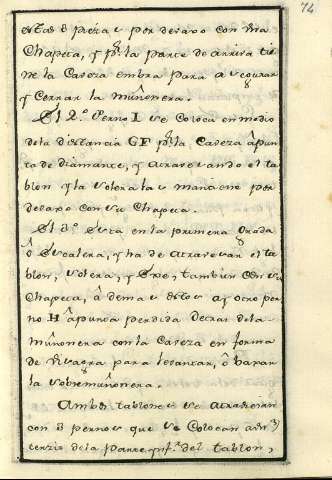 74
con una
Chapeta, y pr. la parte de arriva tie
ne la Caveza embra para asegurar
y Cerrar la muñonera.
El 2º. Perno I se Coloca en medio
dela distancia GF pr. la Caveza â pun
ta de diamante, y atravesando el ta
blon y la Solera la su mano no por
devaxo con su Chapeta.
El 3º esta en la primera grada
ô Escalera, y ha de atravesar el ta
blon, Solera, y Exe, tambien con su
Chapeta, â demas estos ay otro per
no H â punta perdida detras dela
muñonera con la Caveza en forma
de Visagra para levantar, ô baxar
la Sobremuñonera.
Ambos tablones se atraviesan
con 3 pernos que se Colocan
tercio dela Parte ynfr. del tablon,